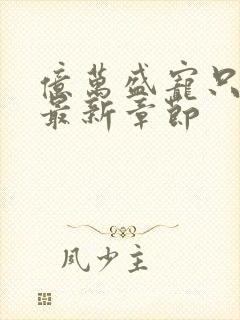 億萬盛寵只
最新章節
風少主